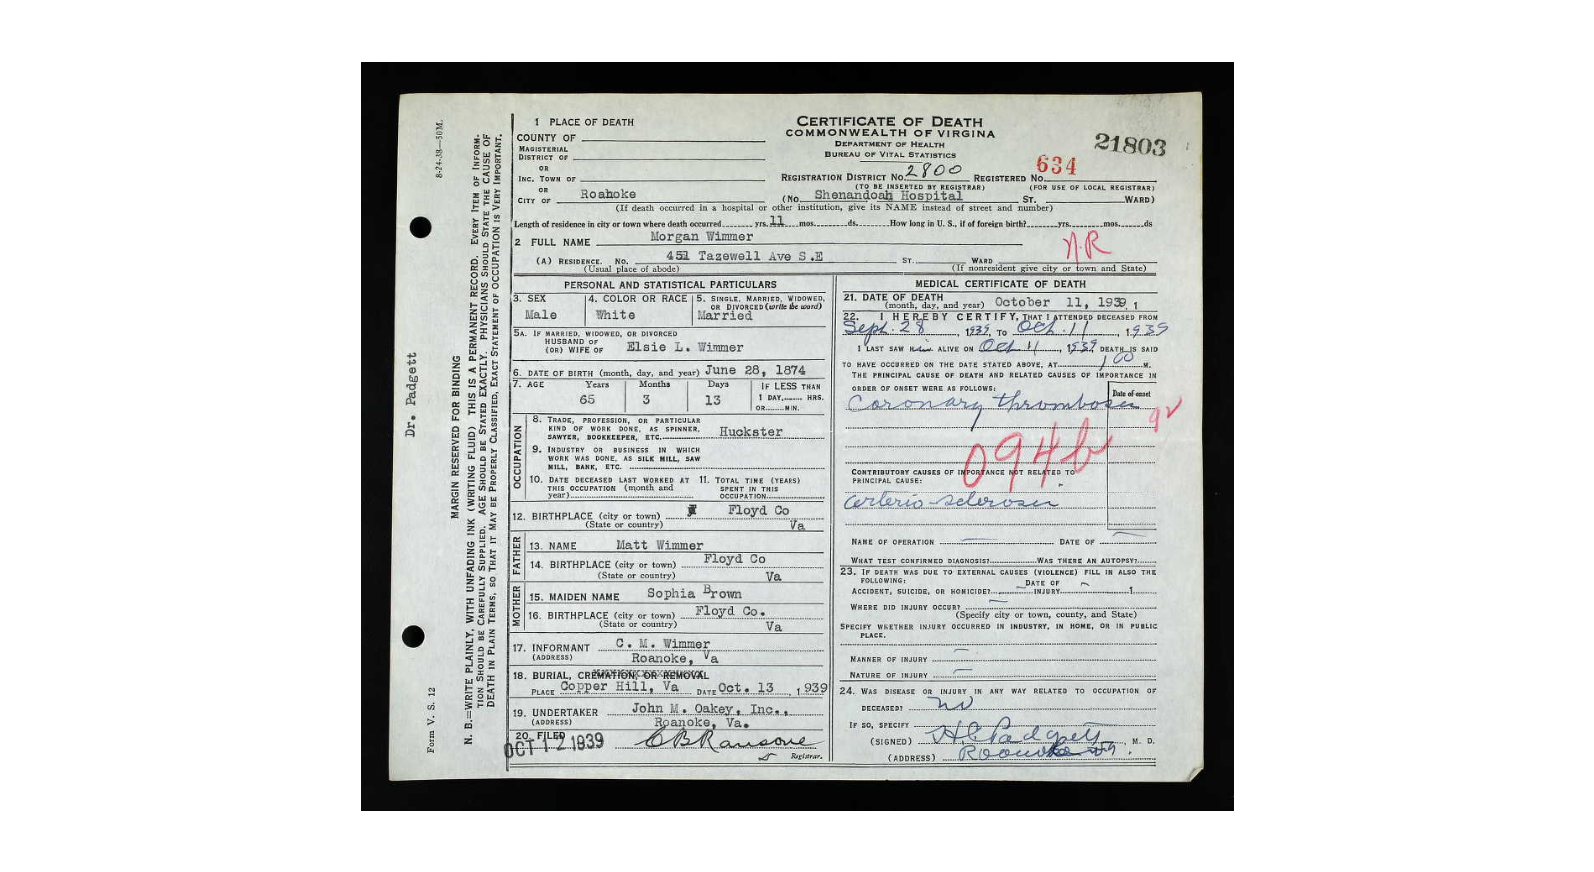 8-24-38—50M.
Dr. Padgett
Form V. S. 12
MARGIN RESERVED FOR BINDING
N. B.—WRITE PLAINLY, WITH UNFADING INK (WRITING FLUID) THIS IS A PERMANENT RECORD. EVERY ITEM OF INFORM-
TION SHOULD BE CAREFULLY SUPPLIED. AGE SHOULD BE STATED EXACTLY. PHYSICIANS SHOULD STATE THE CAUSE OF
DEATH IN PLAIN TERMS, SO THAT IT MAY BE PROPERLY CLASSIFIED. EXACT STATEMENT OF OCCUPATION IS VERY IMPORTANT.
CERTIFICATE OF DEATH
COMMONWEALTH OF VIRGINIA
DEPARTMENT OF HEALTH
BUREAU OF VITAL STATISTICS
21803
634
1 PLACE OF DEATH
COUNTY OF
MAGISTERIAL
DISTRICT OF
OR
INC. TOWN OF
OR
CITY OF Roahoke
REGISTRATION DISTRICT NO. 2800 REGISTERED NO.
(TO BE INSERTED BY REGISTRAR) (FOR USE OF LOCAL REGISTRAR)
(No. Shenandoah Hospital ST. WARD)
(If death occurred in a hospital or other institution, give its NAME instead of street and number)
Length of residence in city or town where death occurred yrs. 11 mos. ds. How long in U. S., if of foreign birth? yrs. mos. ds
2 FULL NAME Morgan Wimmer
N.R
(A) RESIDENCE. NO. 451 Tazewell Ave S.E ST. WARD
(Usual place of abode) (If nonresident give city or town and State)
PERSONAL AND STATISTICAL PARTICULARS
3. SEX 4. COLOR OR RACE 5. SINGLE, MARRIED, WIDOWED,
OR DIVORCED (write the word)
Male White Married
5A. IF MARRIED, WIDOWED, OR DIVORCED
HUSBAND OF
(OR) WIFE OF Elsie L. Wimmer
6. DATE OF BIRTH (month, day, and year) June 28, 1874
7. AGE Years Months Days IF LESS THAN
65 3 13 1 DAY, HRS.
OR MIN.
OCCUPATION
8. TRADE, PROFESSION, OR PARTICULAR
KIND OF WORK DONE, AS SPINNER,
SAWYER, BOOKKEEPER, ETC. Huckster
9. INDUSTRY OR BUSINESS IN WHICH
WORK WAS DONE, AS SILK MILL, SAW
MILL, BANK, ETC.
10. DATE DECEASED LAST WORKED AT 11. TOTAL TIME (YEARS)
THIS OCCUPATION (month and SPENT IN THIS
year) OCCUPATION
12. BIRTHPLACE (city or town) Floyd Co
(State or country) Va
FATHER
13. NAME Matt Wimmer
14. BIRTHPLACE (city or town) Floyd Co
(State or country) Va
MOTHER
15. MAIDEN NAME Sophia Brown
16. BIRTHPLACE (city or town) Floyd Co.
(State or country) Va
17. INFORMANT C. M. Wimmer
(ADDRESS) Roanoke, Va
18. BURIAL, CREMATION, OR REMOVAL
PLACE Copper Hill, Va DATE Oct. 13, 1939
19. UNDERTAKER John M. Oakey, Inc.,
(ADDRESS) Roanoke, Va.
20. FILED
OCT 12 1939 C B Ransone
Registrar.
MEDICAL CERTIFICATE OF DEATH
21. DATE OF DEATH
(month, day, and year) October 11, 1939
22. I HEREBY CERTIFY, THAT I ATTENDED DECEASED FROM
Sept. 28, 1939, TO Oct. 11, 1939
I LAST SAW him ALIVE ON Oct 11, 1939 DEATH IS SAID
TO HAVE OCCURRED ON THE DATE STATED ABOVE, AT 1 00 M.
THE PRINCIPAL CAUSE OF DEATH AND RELATED CAUSES OF IMPORTANCE IN
ORDER OF ONSET WERE AS FOLLOWS:
Date of onset
Coronary thrombosis
094b
CONTRIBUTORY CAUSES OF IMPORTANCE NOT RELATED TO
PRINCIPAL CAUSE:
Arterio-sclerosis
NAME OF OPERATION DATE OF
WHAT TEST CONFIRMED DIAGNOSIS? WAS THERE AN AUTOPSY?
23. IF DEATH WAS DUE TO EXTERNAL CAUSES (VIOLENCE) FILL IN ALSO THE
FOLLOWING: DATE OF
ACCIDENT, SUICIDE, OR HOMICIDE? INJURY 1
WHERE DID INJURY OCCUR?
(Specify city or town, county, and State)
SPECIFY WHETHER INJURY OCCURRED IN INDUSTRY, IN HOME, OR IN PUBLIC
PLACE.
MANNER OF INJURY
NATURE OF INJURY
24. WAS DISEASE OR INJURY IN ANY WAY RELATED TO OCCUPATION OF
DECEASED? no
IF SO, SPECIFY
(SIGNED) H C Padgett, M. D.
(ADDRESS) Roanoke Va